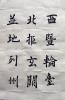 西暨輪臺
北拒玄闕
並地列州